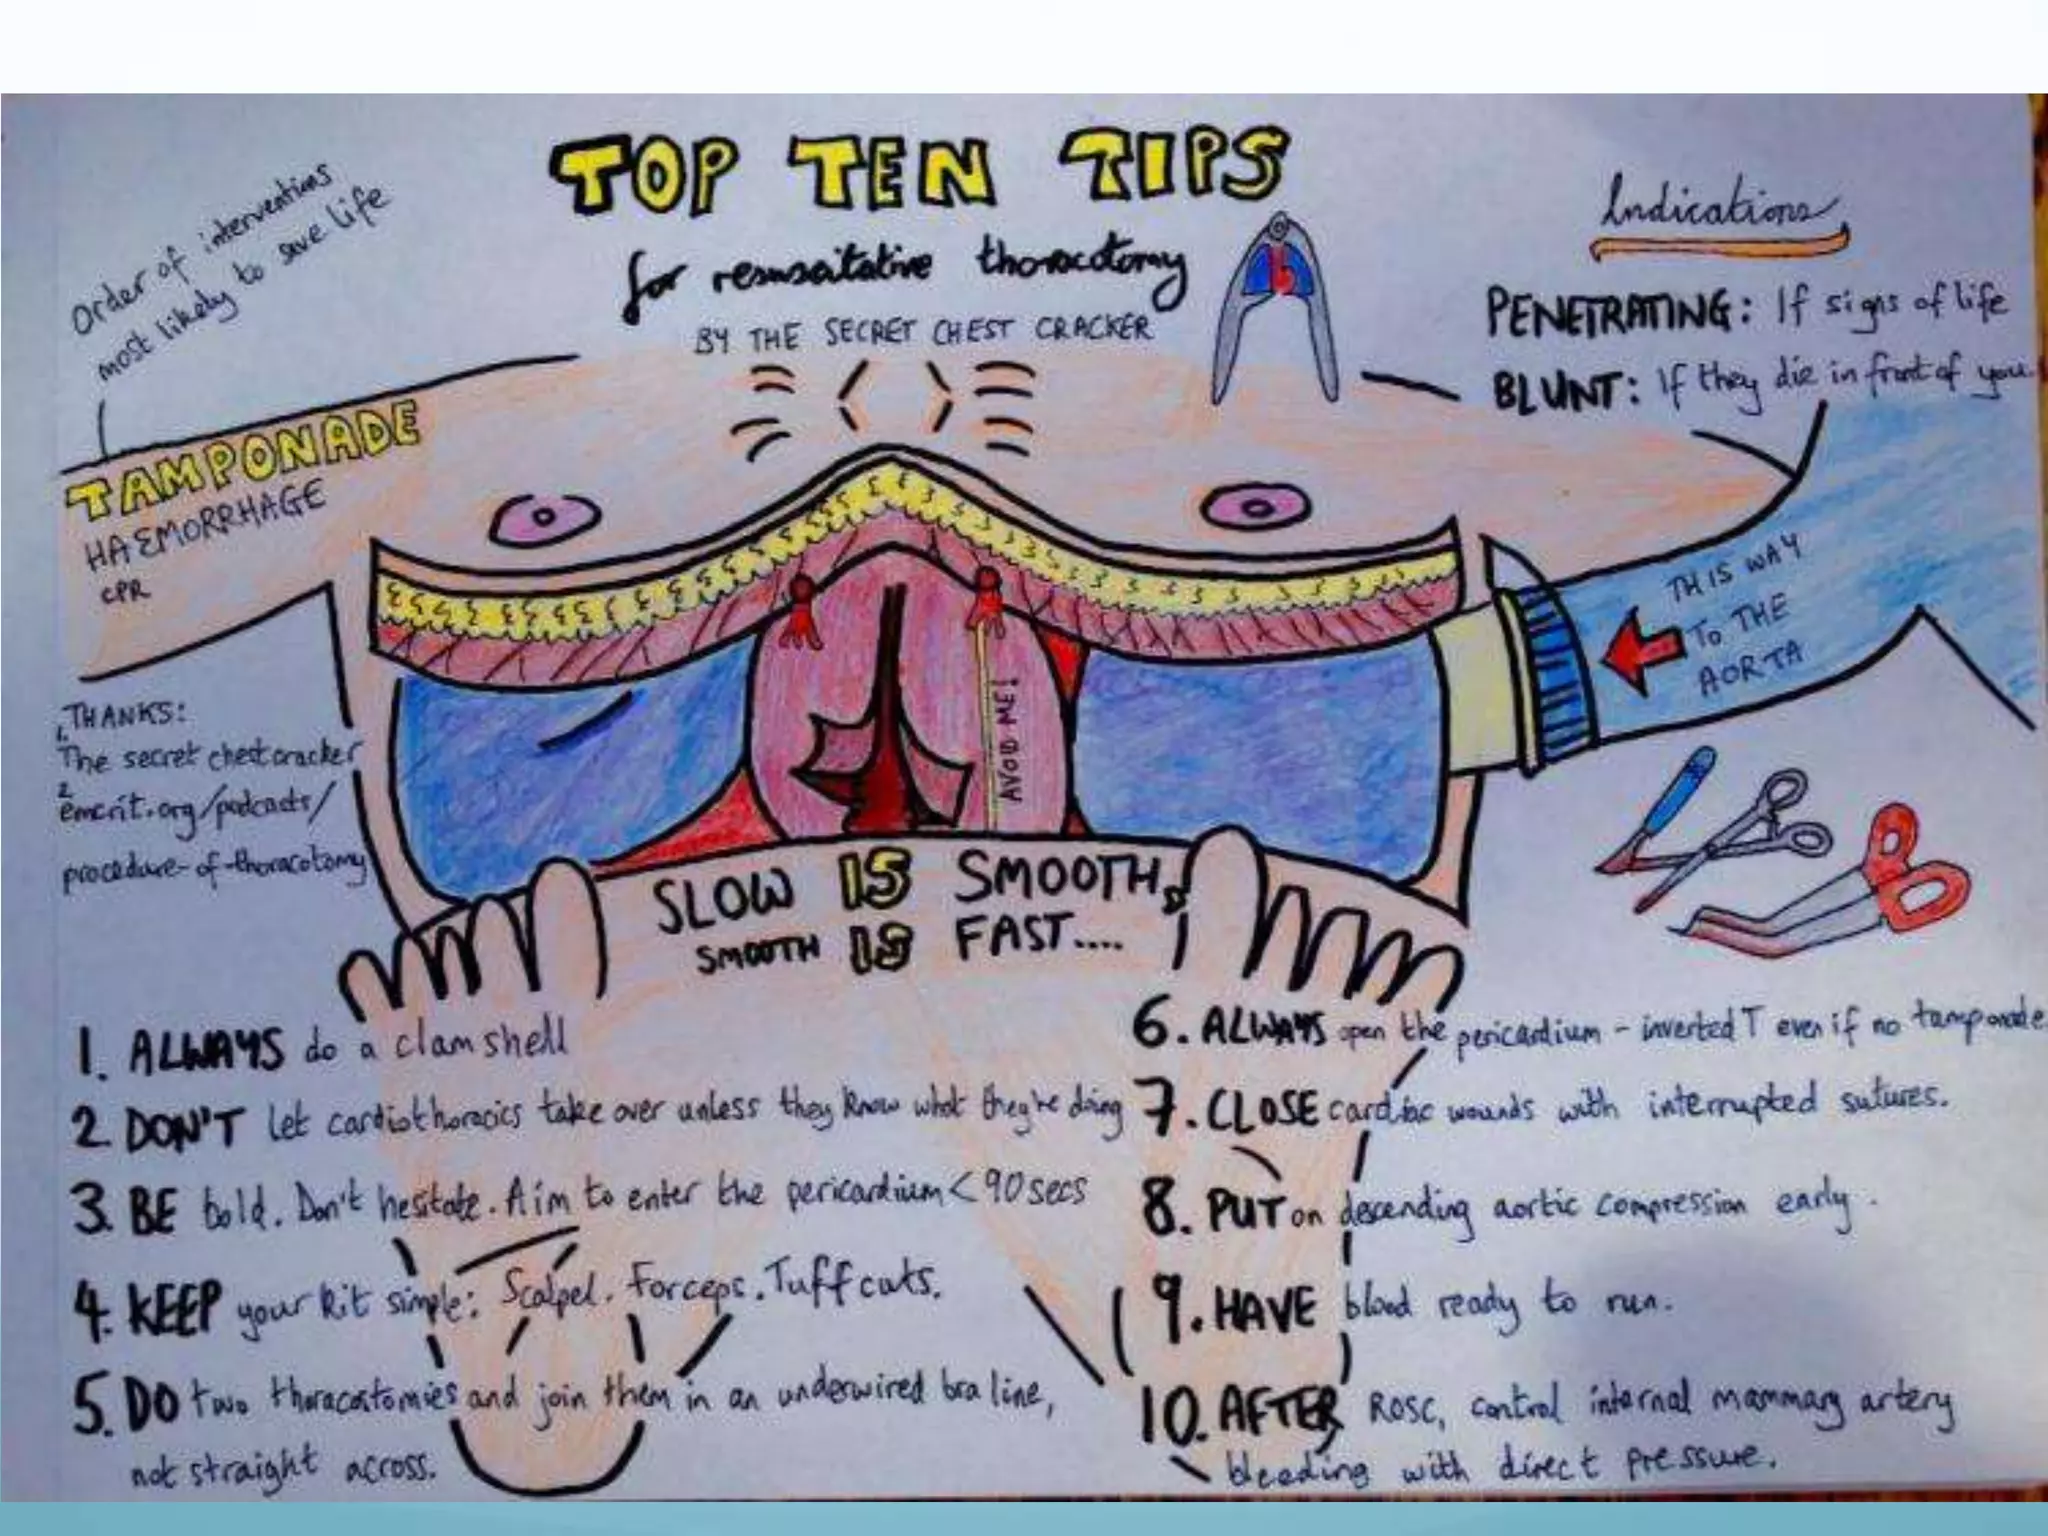 TOP TEN TIPS
for resuscitative thoracotomy
BY THE SECRET CHEST CRACKER
Order of interventions
most likely to save life
TAMPONADE
HAEMORRHAGE
CPR
Indications
PENETRATING: If signs of life
BLUNT: If they die in front of you.
THIS WAY
TO THE
AORTA
AVOID ME!
THANKS:
1. The secret chestcracker
2. emcrit.org/podcasts/
procedure-of-thoracotomy
SLOW IS SMOOTH &
SMOOTH IS FAST....
1. ALWAYS do a clam shell
2 DON'T let cardiothoracics take over unless they know what they're doing
3. BE bold. Don't hesitate. Aim to enter the pericardium < 90 secs
4. KEEP your kit simple: Scalpel. Forceps. Tuff cuts.
5. DO two thoracostomies and join them in an underwired bra line,
not straight across.
6. ALWAYS open the pericardium - inverted T even if no tamponade
7. CLOSE cardiac wounds with interrupted sutures.
8. PUT on descending aortic compression early.
9. HAVE blood ready to run.
10. AFTER ROSC, control internal mammary artery
bleeding with direct pressure.